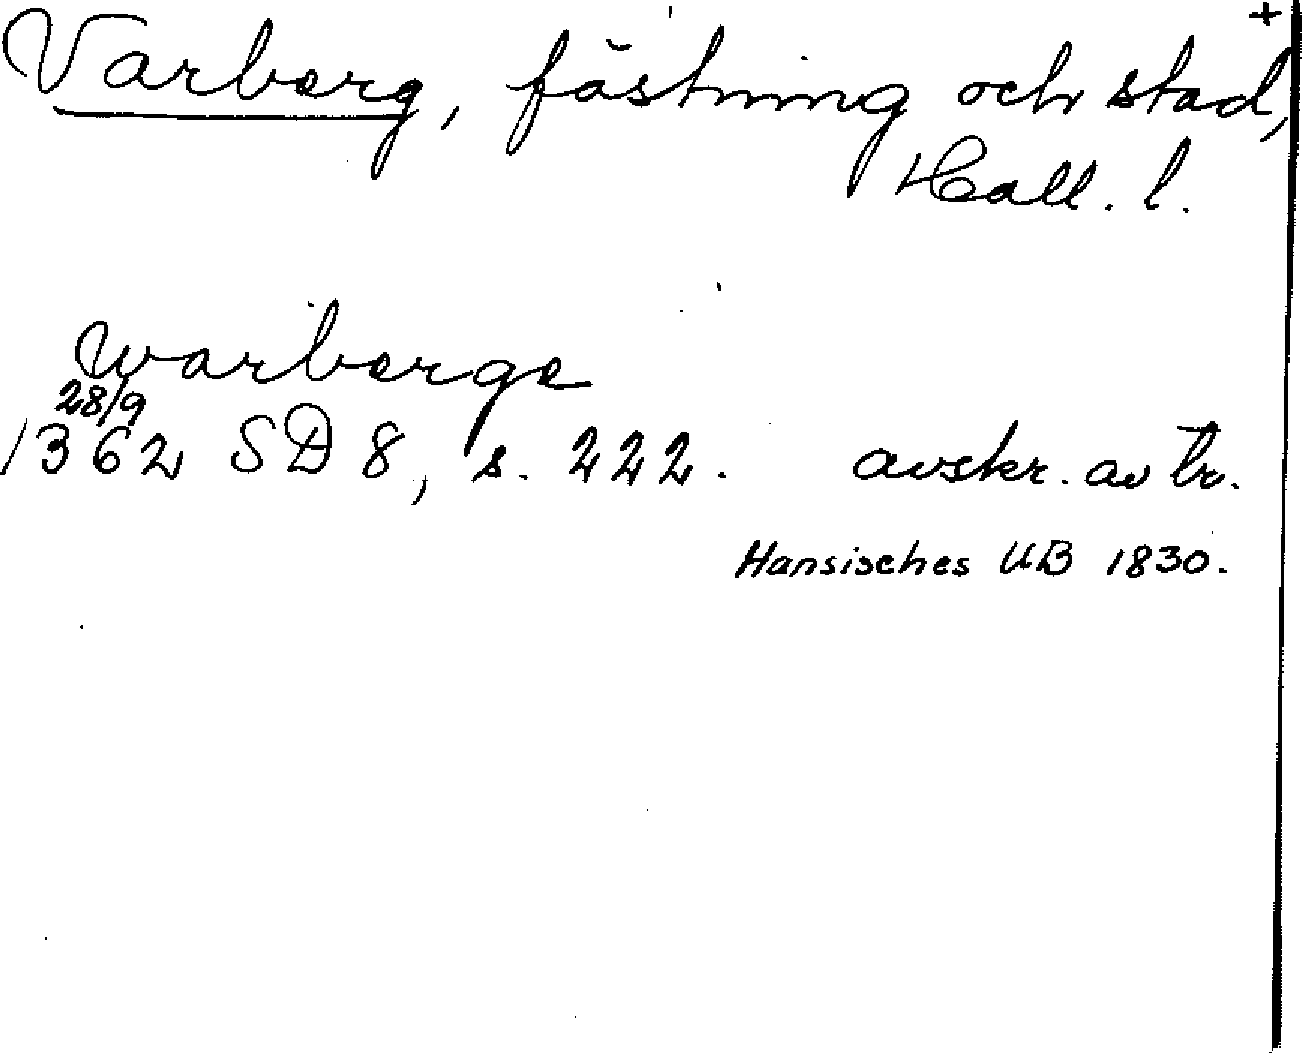 +
Varberg, fästning och stad,
Hall. l.
Warberge
28/9
1362 SD 8, s. 222. avskr. av tr.
Hansisches UB 1830.